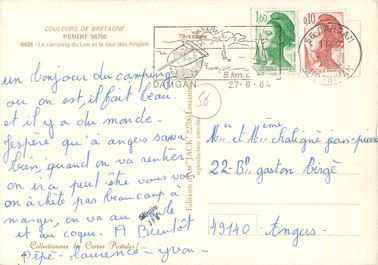 COULEURS DE BRETAGNE
PENERF 56750
6426 - Le camping du Len et la tour des Anglais
un bonjour du camping
ou on est, il fait beau
et il y a du monde -
J'espère qu'à angers sava
bien, quand on va rentrer
on ira peut-être vous voir
on achète pas beaucoup à
manger, on va au
et au coque. A Bientôt
pépé - laurence - yvon -
Collectionnez les Cartes Postales
Editions d'Art JACK
reproduction interdite
Bretagne
8 km.
DAMGAN
27-6-84
1,60
0,10
56 DAMGAN
MORBIHAN
56
Mr et Mme Chaligné jean-pierre
22-Bd gaston Birgé
49140
Angers